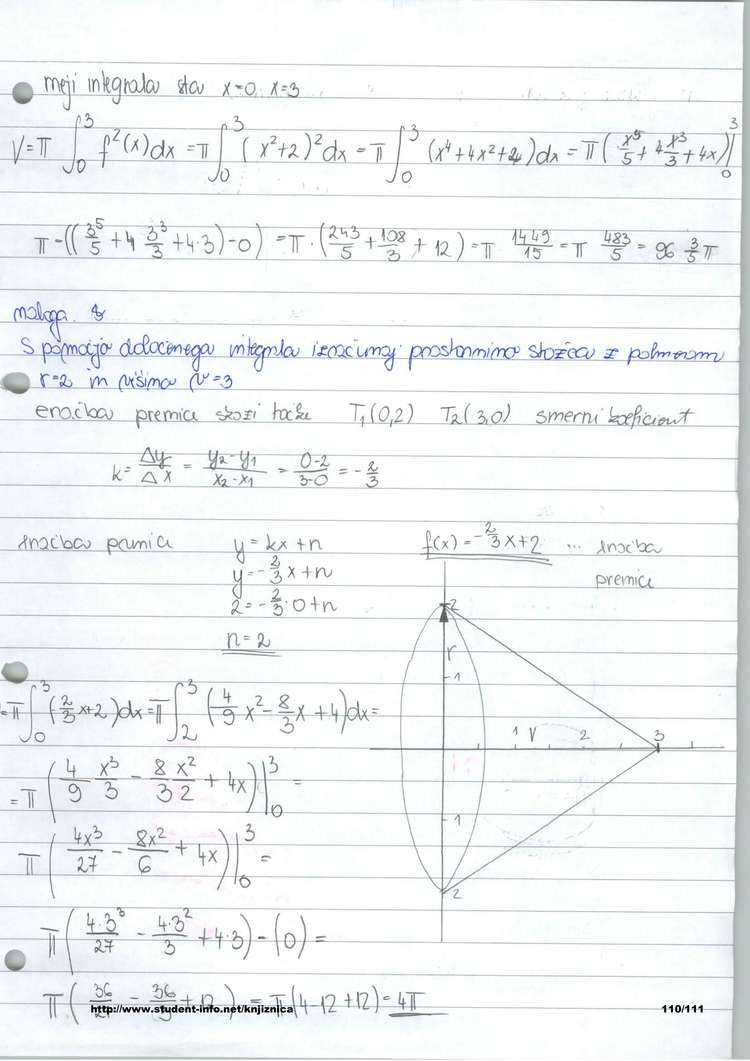 meji integrala sta x=0, x=3
V=π ∫₀³ f²(x)dx = π ∫₀³ (x²+2)²dx = π ∫₀³ (x⁴+4x²+4)dx = π(x⁵/5 + 4 x³/3 + 4x)|₀³
π·((3⁵/5 + 4 3³/3 + 4·3)-0) = π·(243/5 + 108/3 + 12) = π 1449/15 = π 483/5 = 96 3/5 π
naloga
S pomočjo določenega integrala izračunaj prostornino stožca z polmerom
r=2 in višino v=3
enačba premice skozi točke T₁(0,2) T₂(3,0) smerni koeficient
k = Δy/Δx = y₂-y₁/x₂-x₁ = 0-2/3-0 = -2/3
enačba premice y = kx+n f(x) = -2/3x+2 ... enačba
y = -2/3x+n premice
2 = -2/3·0+n
n=2
2
r
1
1 V 2 3
1
2
=π ∫₀³ (-2/3x+2)dx = π ∫₂³ (4/9x² - 8/3x + 4)dx =
= π (4/9 x³/3 - 8/3 x²/2 + 4x)|₀³ =
π (4x³/27 - 8x²/6 + 4x)|₀³ =
π (4·3³/27 - 4·3²/3 + 4·3) - (0) =
π ( 36/ - 36/ + 12 ) = π(4-12+12) = 4π
http://www.student-info.net/knjiznica 110/111